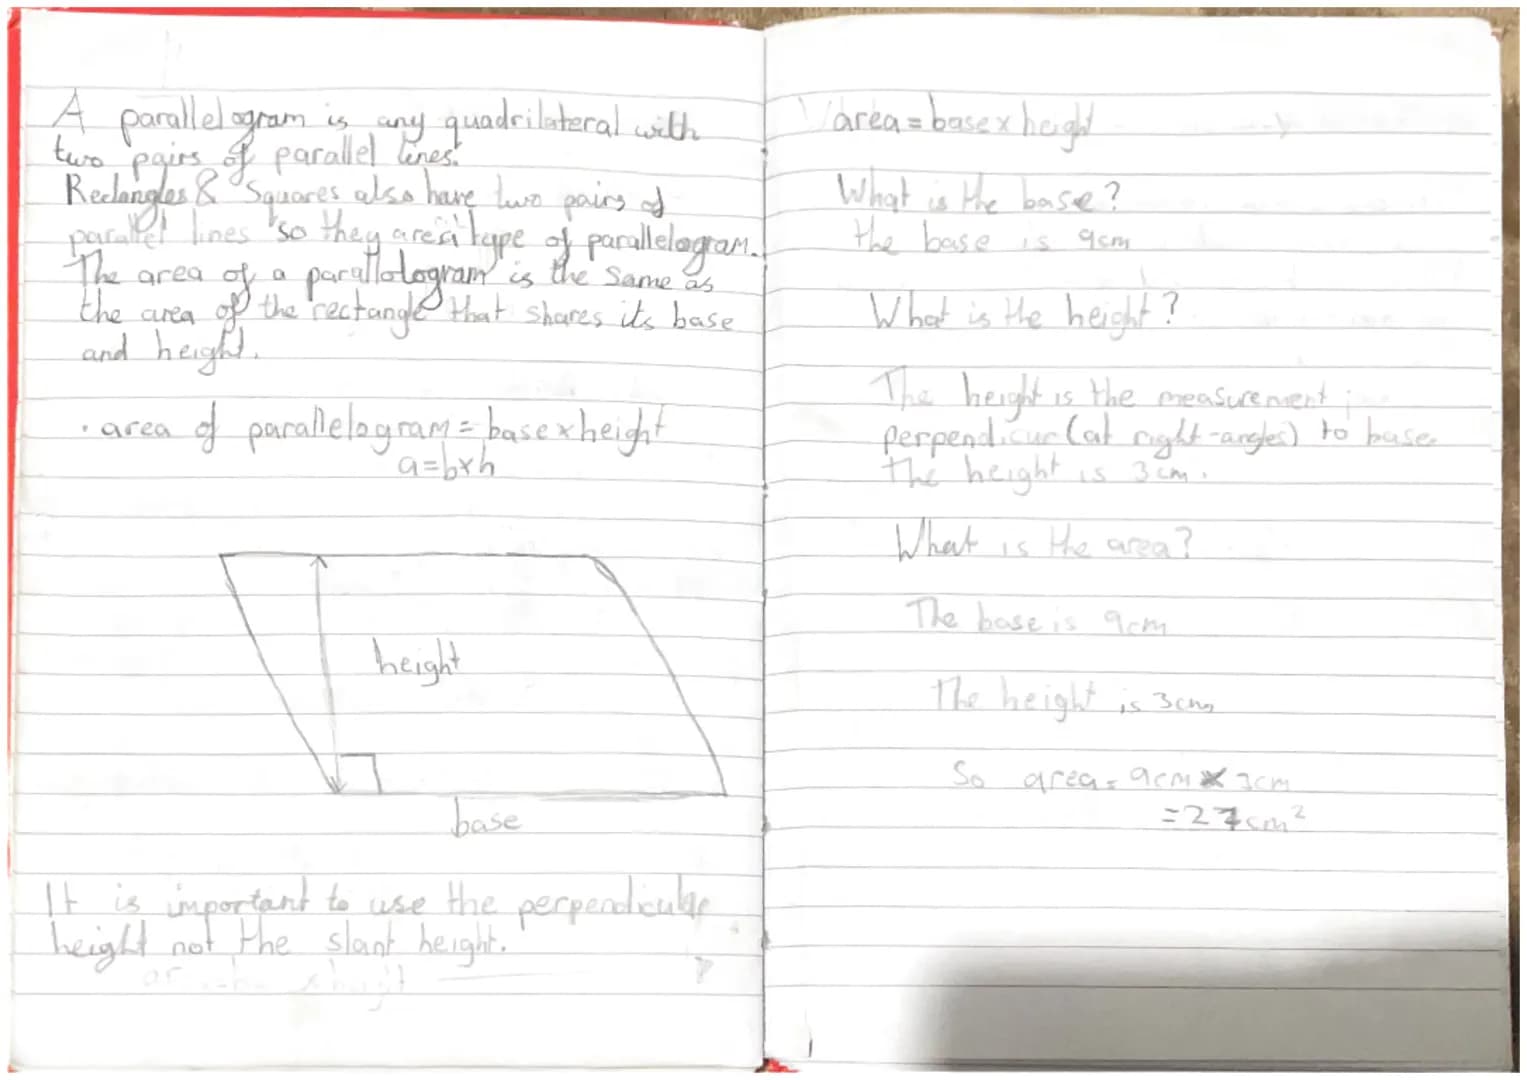 A parallelogram is any quadrilateral with
two pairs of parallel lines.
Rectangles & Squares also have two pairs of
parallel lines so they are a type of parallelogram.
The area of a parallologram is the same as
the area of the rectangle that shares its base
and height.
· area of parallelogram = base x height
a=b×h
height
base
It is important to use the perpendicular
height not the slant height.
area = base x height
What is the base?
the base is 9cm
What is the height?
The height is the measurement
perpendicur (at right-angles) to base.
the height is 3cm.
What is the area?
The base is 9cm
The height is 3cm
So area = 9cm x 3cm
=27cm²